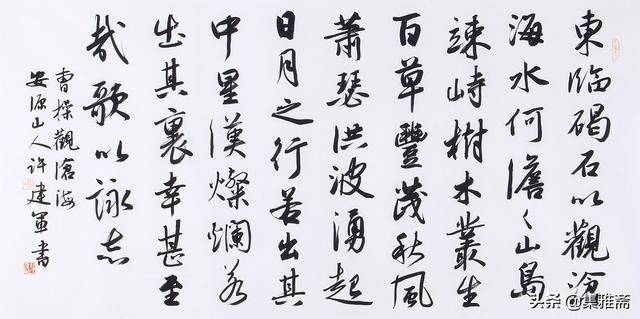 東臨碣石以觀滄
海水何澹々山島
竦峙樹木叢生
百草豐茂秋風
蕭瑟洪波湧起
日月之行若出其
中星漢燦爛若
出其裏幸甚至
哉歌以詠志
曹操觀滄海
安源山人許建軍書
头条 @集雅斋